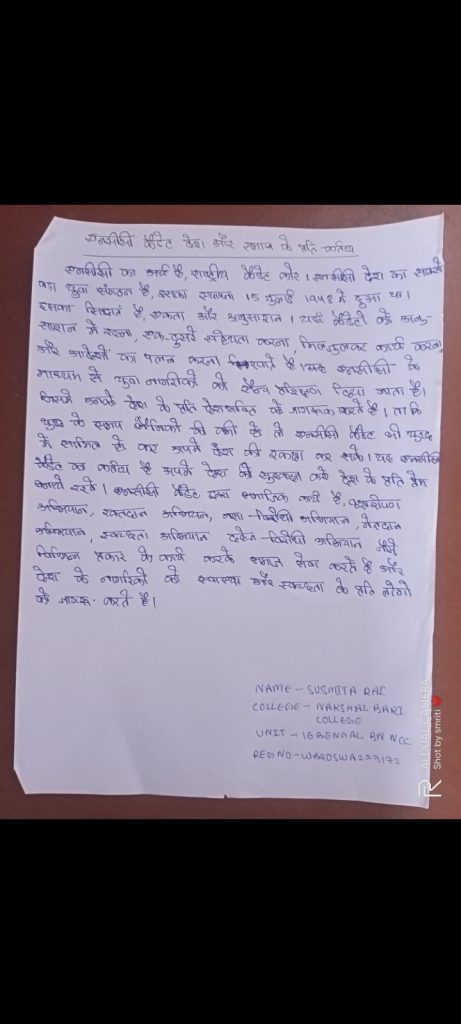 एनसीसी कैडेट देश और समाज के प्रति कर्तव्य
एनसीसी का अर्थ है, राष्ट्रीय कैडेट कोर। एनसीसी देश का सबसे
बड़ा युवा संगठन है, इसका स्थापना 15 जुलाई 1948 में हुआ था।
इसका सिद्धांत है, एकता और अनुसाशन। यहाँ कैडेटों को अनु-
साशन में रहना, एक-दुसरे सहेयता करना, मिलजुलकर कार्य करना,
और आदेशों का पलन करना सिखाते है। एनसीसी के
माध्यम से युवा नागरिकों को सैन्य प्रशिक्षण दिया जाता है।
जिससे उनके देश के प्रति देशभक्ति को जागरूक करते है। ताकि
युद्ध के समय सैनिकों की कमी हो तो एनसीसी कैडेट भी युद्ध
में सामिल हो कर अपने देश की रक्षा कर सके। यह एनसीसी
कैडेट का कर्तव्य है अपने देश को सुरक्षा करे देश के प्रति प्रेम
बनाये रखे। एनसीसी कैडेट द्वारा समाजिक कार्य है, वृक्षारोपण
अभियान, रक्तदान अभियान, नशा-विरोधी अभियान, नेत्रदान
अभियान, स्वच्छता अभियान दहेज-विरोधी अभियान जैसे
विभिन्न प्रकार के कार्य करके समाज सेवा करते है और
देश के नागरिकों को स्वास्थ्य और स्वच्छता के प्रति लोगो
को जागरूक करते है।
NAME - SUSMITA RAI
COLLEGE - NAKSHAL BARI
COLLEGE
UNIT - 16 BENGAL BN NCC
REG NO - WB20SWA253172
AI DUAL CAMERA
Shot by smriti